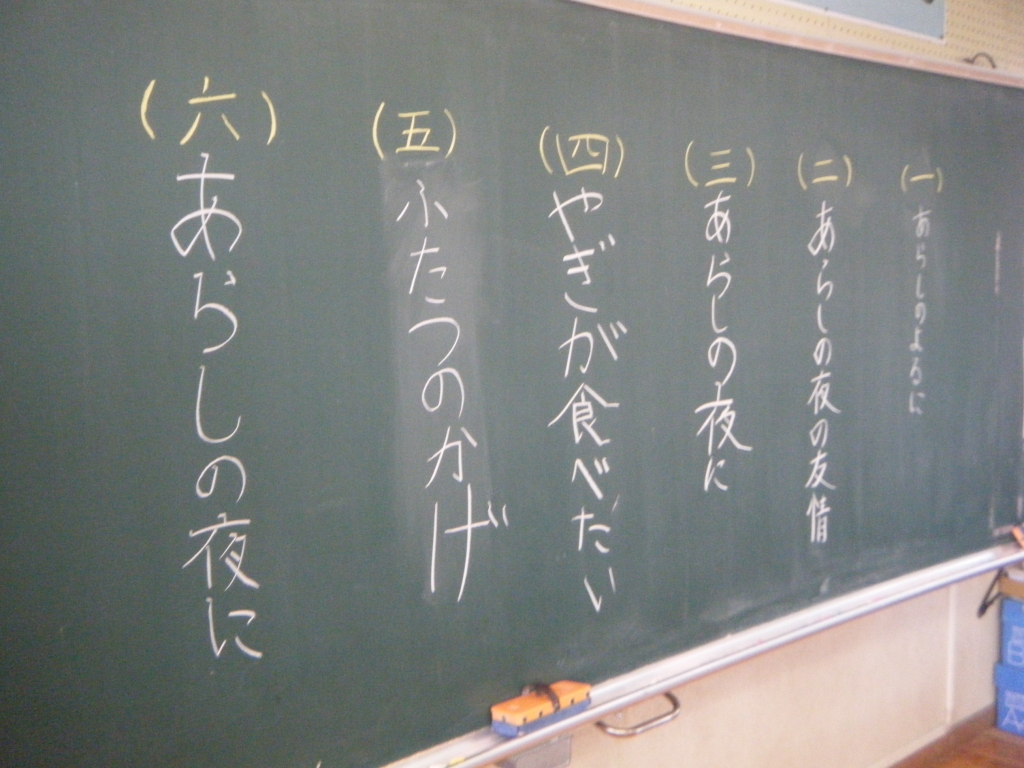 (一)あらしのよるに
(二)あらしの夜の友情
(三)あらしの夜に
(四)やぎが食べたい
(五)ふたつのかげ
(六)あらしの夜に